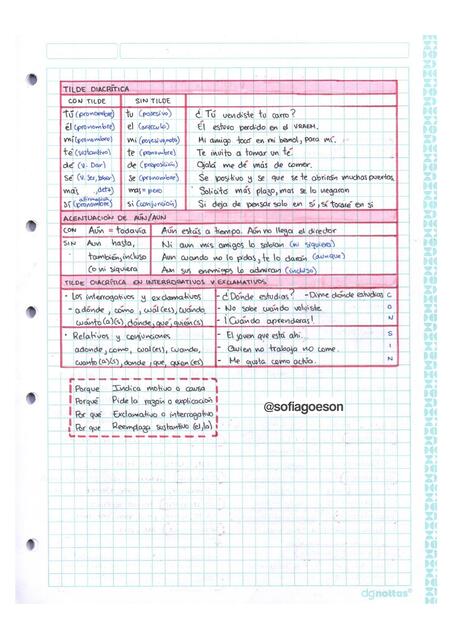 TILDE DIACRÍTICA
CON TILDE SIN TILDE
tú (pronombre) tu (posesivo) ¿Tú vendiste tu carro?
él (pronombre) el (artículo) Él estuvo perdido en el VRAEM.
mí (pronombre) mi Mi amigo toca en mi banal, para mí.
té (sustantivo) te (pronombre) Te invito a tomar un té.
dé (v. Dar) de (preposición) Ojalá me dé más de comer.
sé (v. Ser, saber) se (pronombre) Sé positivo y sé que se te abrirán muchas puertas
más mas = pero Solicité más plazo, mas se lo negaron
sí (afirmación, pronombre) si (conjunción) Si deja de pensar solo en sí, sí tocaré en si
ACENTUACIÓN DE AÚN/AUN
CON Aún = todavía Aún estás a tiempo. Aún no llega el director
SIN Aun hasta, Ni aun mis amigos lo sabían (ni siquiera)
también, incluso Aun cuando no lo pidas, te lo darán (aunque)
(o ni siquiera Aun sus enemigos lo admiraban (incluso)
TILDE DIACRÍTICA EN INTERROGATIVOS Y EXCLAMATIVOS
· Los interrogativos y exclamativos - ¿Dónde estudias? - Dime dónde estudias C
- adónde, cómo, cuál(es), cuándo, - No sabe cuándo volviste O
cuánto(a)(s), dónde, qué, quién(s) - ¡Cuándo aprenderás! N
· Relativos y conjunciones - El joven que está ahí. S
adonde, como, cual(es), cuando, - Quien no trabaja no come. I
cuanto(a)(s), donde, que, quien(es) - Me gusta como actúa. N
Porque Indica motivo o causa
Porqué Pide la razón o explicación
Por qué Exclamativo o interrogativo
Por que Reemplaza sustantivo (el, la)
@sofiagoeson
dgnottas